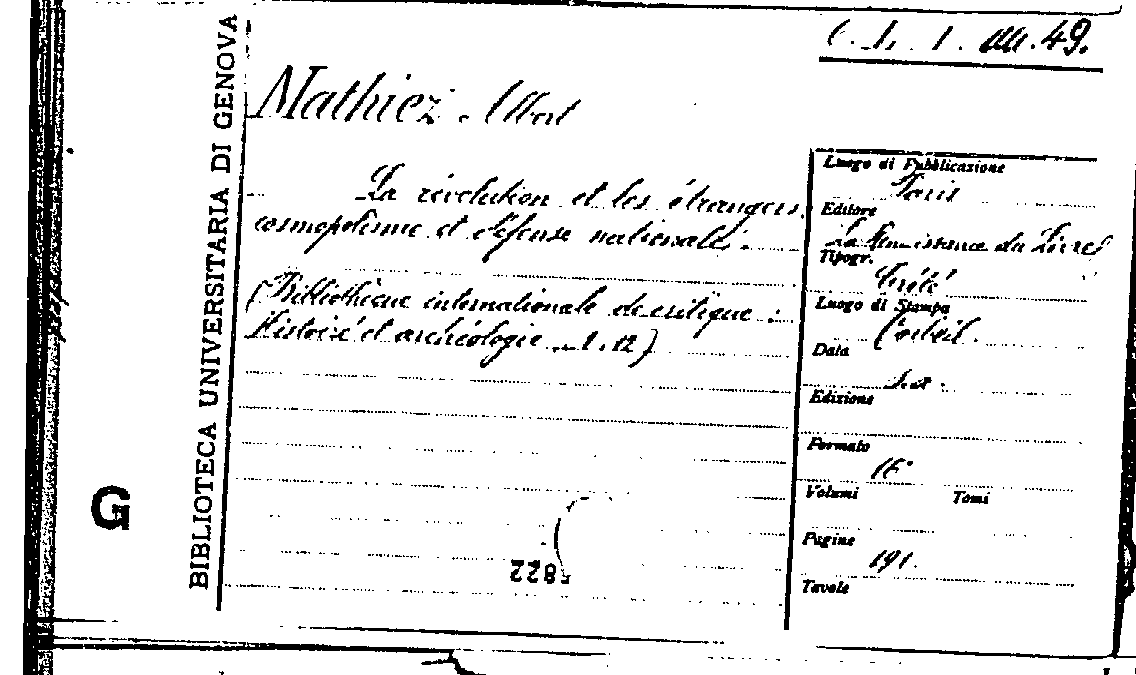 49.
BIBLIOTECA UNIVERSITARIA DI GENOVA
Mathiez Albert
La révolution et les étrangers.
cosmopolitisme et défense nationale.
(Bibliothèque internationale de critique:
Histoire et archéologie n. 12)
Luogo di Pubblicazione
Paris
Editore
La Renaissance du Livre
Tipogr.
Crété
Luogo di Stampa
Corbeil.
Data
s.a.
Edizione
Formato
16°
Volumi Tomi
Pagine
191.
Tavole
G
5822